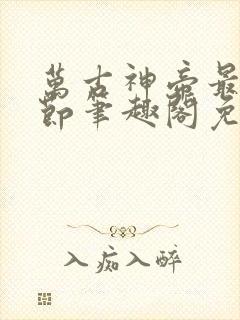 萬古神帝最
節筆趣閣免
入痴入醉